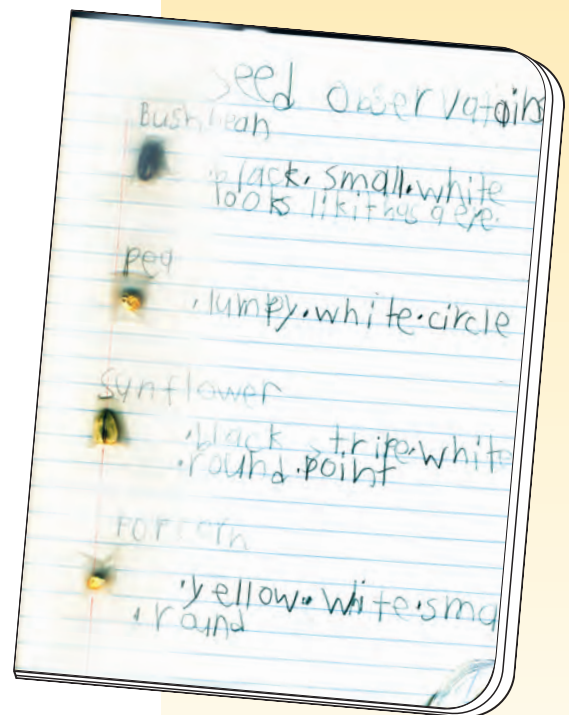 seed observatoins
Bush bean
·black·small·white
looks likithus a eye·
pea
·lumpy·white·circle
sunflower
·black stripe·white
·round·point
·yellow·white·sma
·round